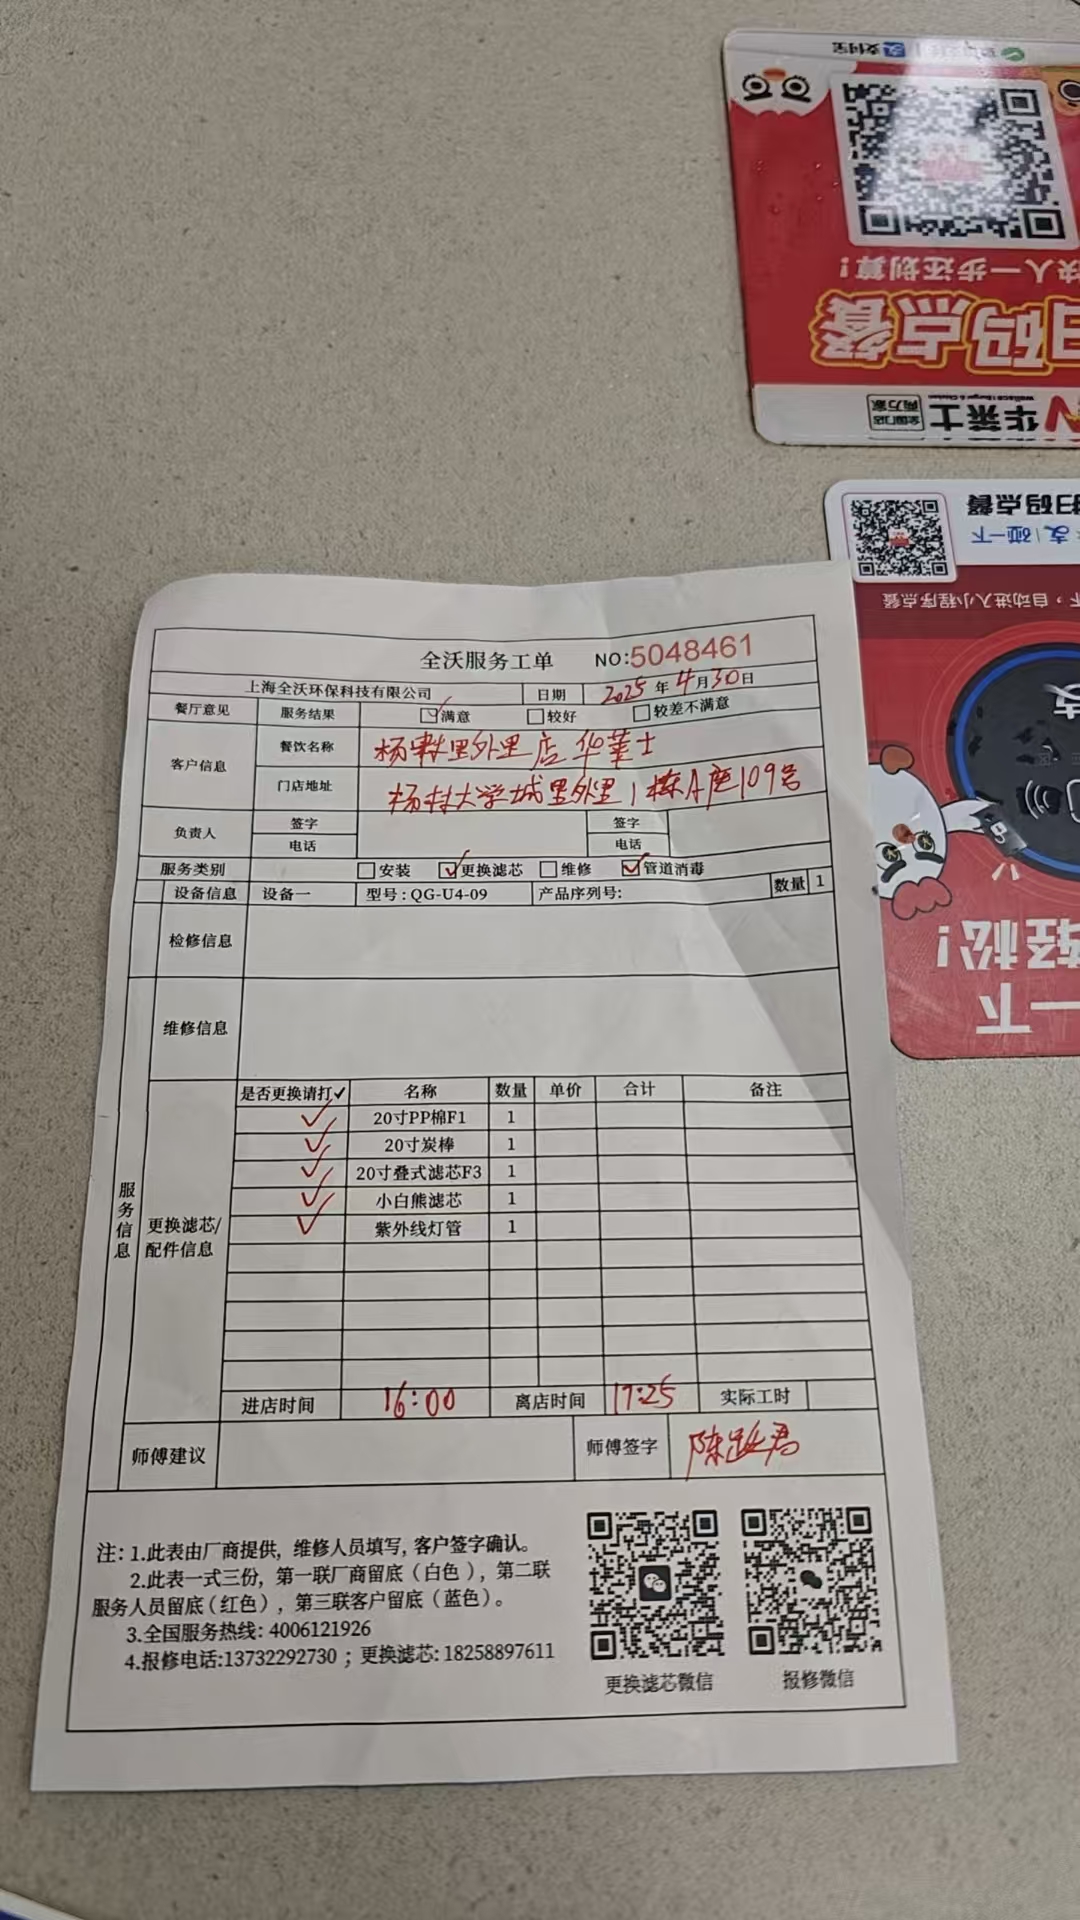 支付宝
扫码点餐
快人一步还划算!
华莱士
全国门店
两万家
扫码点餐
支 碰一下
自动进入小程序点餐
轻松!
一下
全沃服务工单 NO:5048461
上海全沃环保科技有限公司 日期 2025年4月30日
餐厅意见 服务结果 ☑满意 □较好 □较差不满意
客户信息 餐饮名称 杨村里外里店 华莱士
门店地址 杨村大学城里外里1栋A座109号
负责人 签字 签字
电话 电话
服务类别 □安装 ☑更换滤芯 □维修 ☑管道消毒
设备信息 设备一 型号:QG-U4-09 产品序列号: 数量 1
检修信息
维修信息
服务信息
更换滤芯/配件信息
是否更换请打✓ 名称 数量 单价 合计 备注
✓ 20寸PP棉F1 1
✓ 20寸炭棒 1
✓ 20寸叠式滤芯F3 1
✓ 小白熊滤芯 1
✓ 紫外线灯管 1
进店时间 16:00 离店时间 17:25 实际工时
师傅建议 师傅签字 陈君
注: 1.此表由厂商提供, 维修人员填写, 客户签字确认。
2.此表一式三份, 第一联厂商留底(白色), 第二联
服务人员留底(红色), 第三联客户留底(蓝色)。
3.全国服务热线: 4006121926
4.报修电话:13732292730 ; 更换滤芯: 18258897611
更换滤芯微信 报修微信